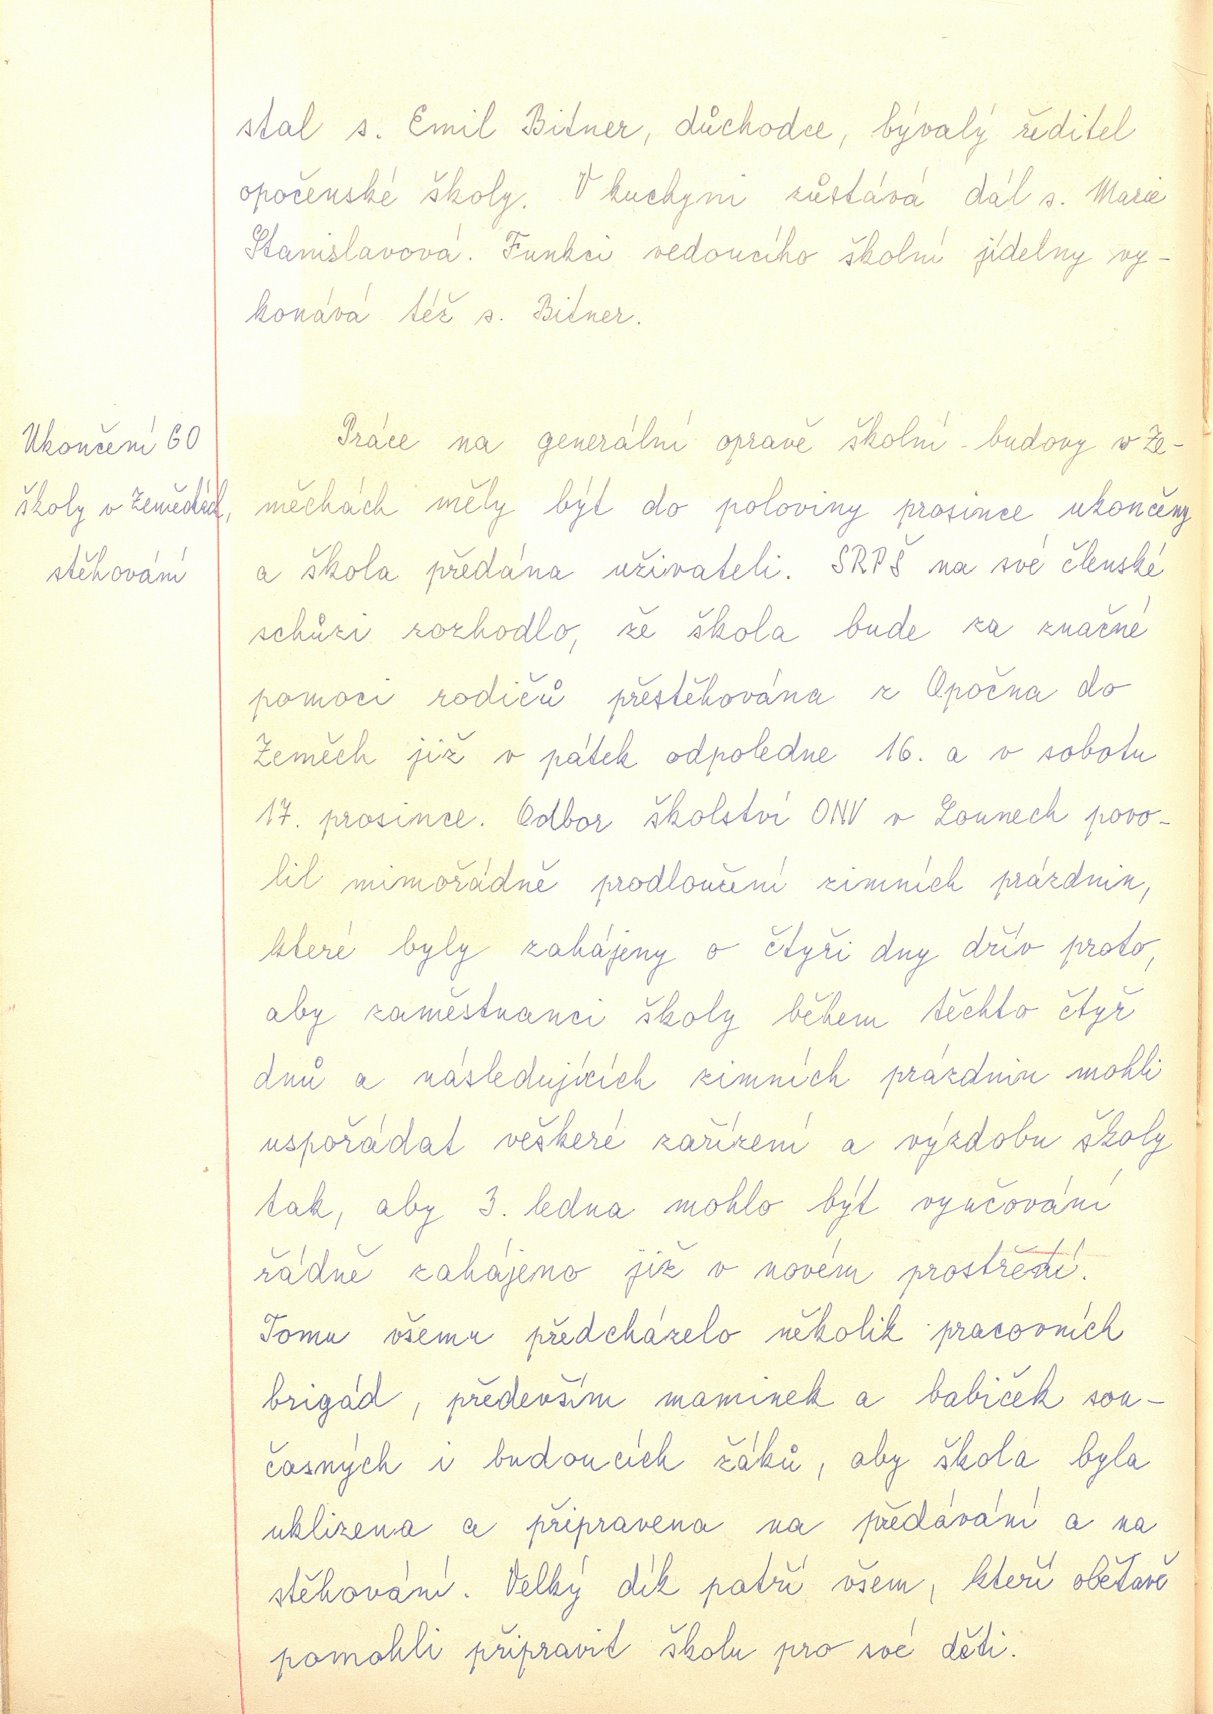 stal s. Emil Bitner, důchodce, bývalý ředitel
opočenské školy. V kuchyni zůstává dál s. Marie
Stanislavová. Funkci vedoucího školní jídelny vy-
konává též s. Bitner.
Ukončení GO
školy v Zeměchách,
stěhování
Práce na generální opravě školní budovy v Ze-
měchách měly být do poloviny prosince ukončeny
a škola předána uživateli. SRPŠ na své členské
schůzi rozhodlo, že škola bude za značné
pomoci rodičů přestěhována z Opočna do
Zeměch již v pátek odpoledne 16. a v sobotu
17. prosince. Odbor školství ONV v Lounech povo-
lil mimořádně prodloužení zimních prázdnin,
které byly zahájeny o čtyři dny dřív proto,
aby zaměstnanci školy během těchto čtyř
dnů a následujících zimních prázdnin mohli
uspořádat veškeré zařízení a výzdobu školy
tak, aby 3. ledna mohlo být vyučování
řádně zahájeno již v novém prostředí.
Tomu všemu předcházelo několik pracovních
brigád, především maminek a babiček sou-
časných i budoucích žáků, aby škola byla
uklizena a připravena na předávání a na
stěhování. Velký dík patří všem, kteří obětavě
pomohli připravit školu pro své děti.